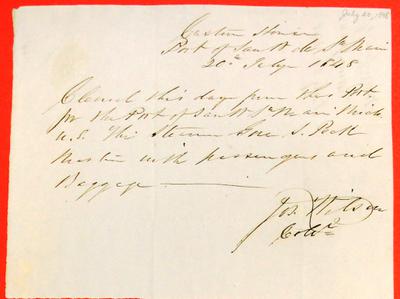 July 20, 1848
Custom House
Port of Sault de Ste Marie
20th July 1848
Cleared this day from this Port
for the Port of Sault Ste Marie Mich
U.S. The Steamer J. Peck
Master with passengers and
Baggage
Jos. Wilson
Colr